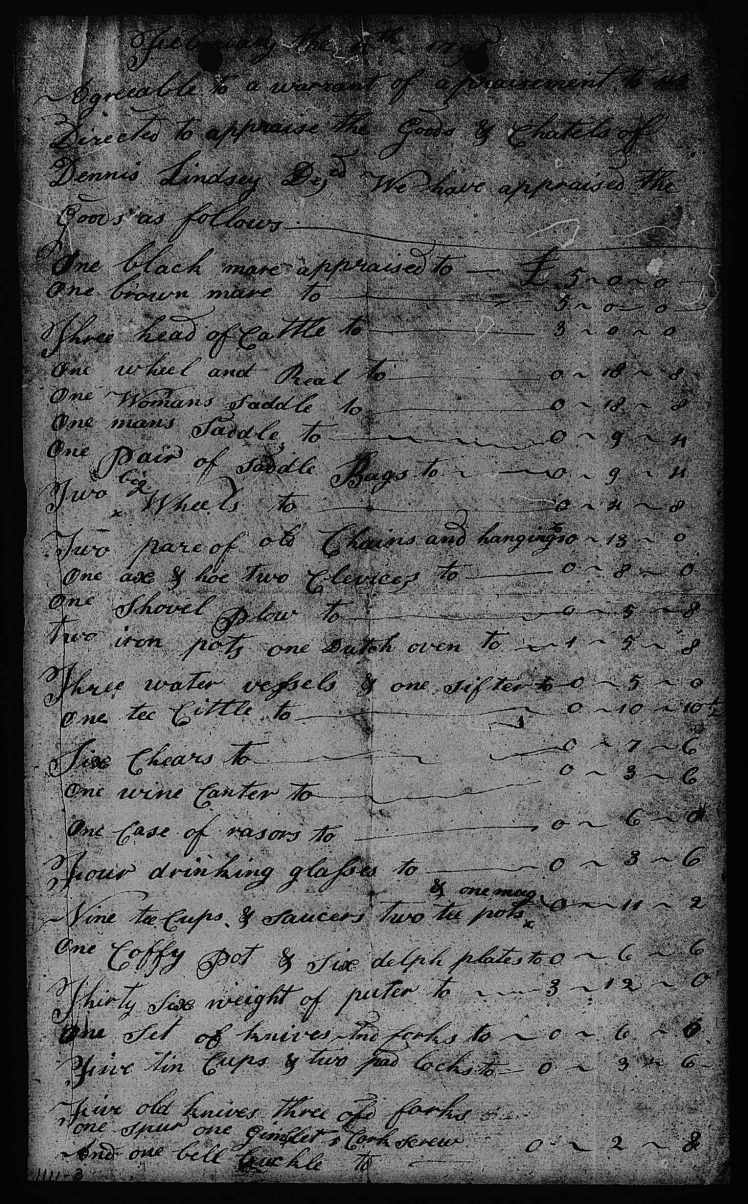 February the
Agreeable to a warrant of apraisement to us
Directed to appraise the Goods & Chatels of
Dennis Lindsey Des,ed We have appraised the
Goods as follows
One black mare appraised to — £ 5 ~ 0 ~ 0
One brown mare to — 5 ~ 0 ~ 0
Three head of Cattle to — 3 ~ 0 ~ 0
One wheel and Real to — 0 ~ 18 ~ 8
One Womans Saddle to — 0 ~ 18 ~ 8
One mans Saddle to — 0 ~ 9 ~ 4
One Pair of Saddle Bags to — 0 ~ 9 ~ 4
Two big Wheels to — 0 ~ 4 ~ 8
Two pare of old Chains and hangings 0 ~ 13 ~ 0
One axe & hoe two Clevices to — 0 ~ 8 ~ 0
One Shovel Plow to — 0 ~ 5 ~ 8
two iron pots one Dutch oven to ~ 1 ~ 5 ~ 8
Three water vessels & one sifter to 0 ~ 5 ~ 0
One tee Cittle to — 0 ~ 10 ~ 10
Six Chears to — 0 ~ 7 ~ 6
One wine Canter to — 0 ~ 3 ~ 6
One Case of rasors to — 0 ~ 6 ~ 0
Four drinking glasses to — 0 ~ 3 ~ 6
& one mug
Nine tee Cups & saucers two tee pots x 0 ~ 11 ~ 2
One Coffy Pot & Six delph plates to 0 ~ 6 ~ 6
Thirty Six weight of puter to ~ 3 ~ 12 ~ 0
One Set of knives And forks to ~ 0 ~ 6 ~ 6
Five tin Cups & two pad locks to — 0 ~ 3 ~ 6
Five old knives three old forks
one spur one Gimblet & Cork screw
And one bell buckle to — 0 ~ 2 ~ 8